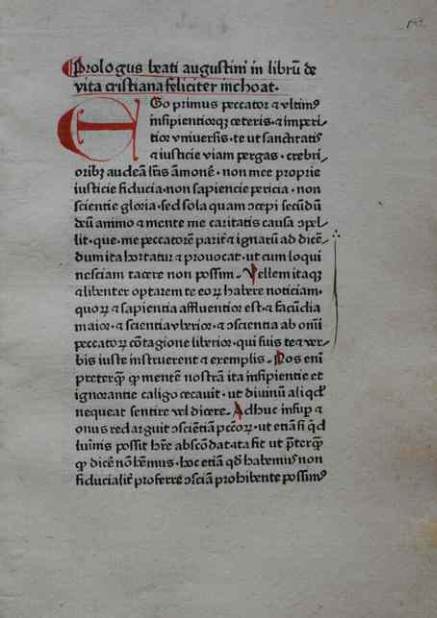 Prologus beati augustini in librū de
vita cristiana feliciter inchoat.
EGo primus peccator ⁊ vltimꝰ
insipientiorqꝫ ceteris ⁊ imperi⸗
tior vniuersis. te ut sanctitatis
⁊ iusticie viam pergas. crebri⸗
oribꝫ audeā lr̄is āmonē. non mee proprie
iusticie fiducia. non sapiencie pericia. non
scientie gloria. sed sola quam accepi secūdū
deū animo ⁊ mente me caritatis causa ꝯpel⸗
lit. que me peccatorē paritē ⁊ ignarū ad dicē⸗
dum ita hortatur ⁊ prouocat. ut cum loqui
nesciam tacere non possim. Vellem itaqꝫ
⁊ libenter optarem te eoꝝ habere noticiam.
quoꝝ ⁊ sapientia affluentior est. ⁊ facūdia
maior. ⁊ scientia vberior. ⁊ ꝯscientia ab om̄i
peccatoꝝ cōtagione liberior. qui suis te ⁊ ver⸗
bis iuste instruerent ⁊ exemplis. Nos enī
preterqꝫ ꝙ mentē nostrā ita insipientie et
ignorantie caligo cecauit. ut diuinū aliqd̄
nequeat sentire vel dicere. Adhuc insuꝑ ⁊
onus redarguit ꝯsciētiā pctōꝝ. ut etiā si qd̄
luīnis possit hr̄e abscōdat. ita fit ut p̄terqꝫ
ꝙ dicē nō hēmus. hoc etiā qd̄ habemus non
fiducialit̄ proferre ꝯsciā prohibente possimꝰ